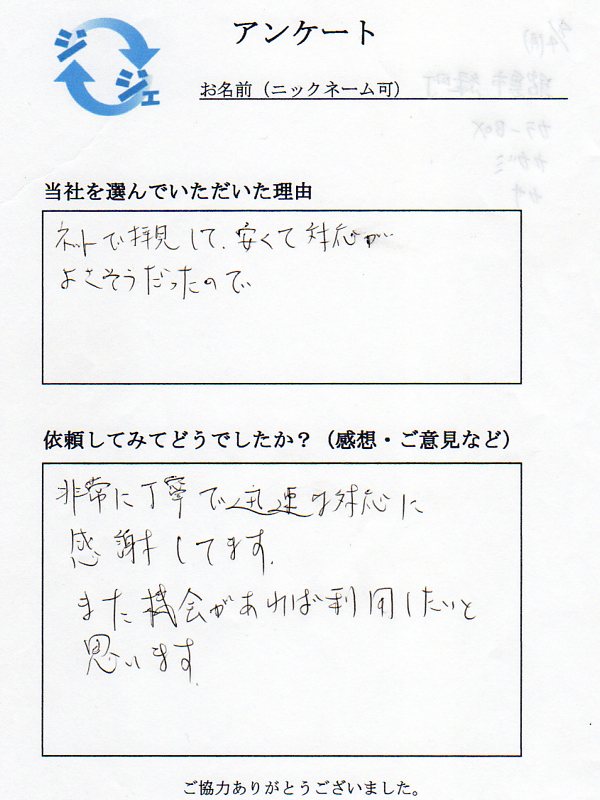 ジ
ジェ
アンケート
お名前（ニックネーム可）
当社を選んでいただいた理由
ネットで拝見して、安くて対応が
よさそうだったので
依頼してみてどうでしたか？（感想・ご意見など）
非常に丁寧で迅速な対応に
感謝してます。
また機会があれば利用したいと
思います。
ご協力ありがとうございました。